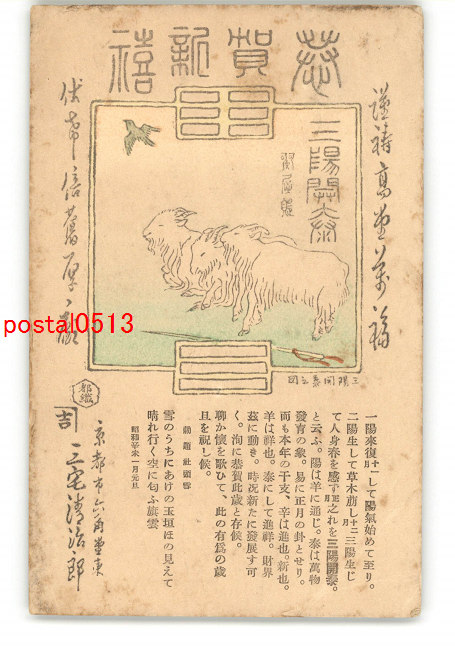 恭賀新禧
謹祷高堂萬福
三陽開泰
伏希倍舊厚
postal0513
三陽開泰之図
一陽來復十一月して陽氣始めて至り。
二陽生して草木萠し十二月三陽生じ
て人身春を感ず正月之れを三陽開泰。
と云ふ。陽は羊に通じ。泰は萬物
發育の象。易に正月の卦とせり。
而も本年の干支、辛は進也。新也。
羊は祥也。泰にして進祥。財界
茲に動き。時況新たに發展す可
く。洵に恭賀此歳と存候。
聊か懷を歌ひて、此の有爲の歲
旦を祝し候。
勅題社頭雪
雪のうちにあけの玉垣ほの見えて
晴れ行く空に匂ふ旗雲
昭和辛未一月元旦
京都市六角堂東
三宅清治郎